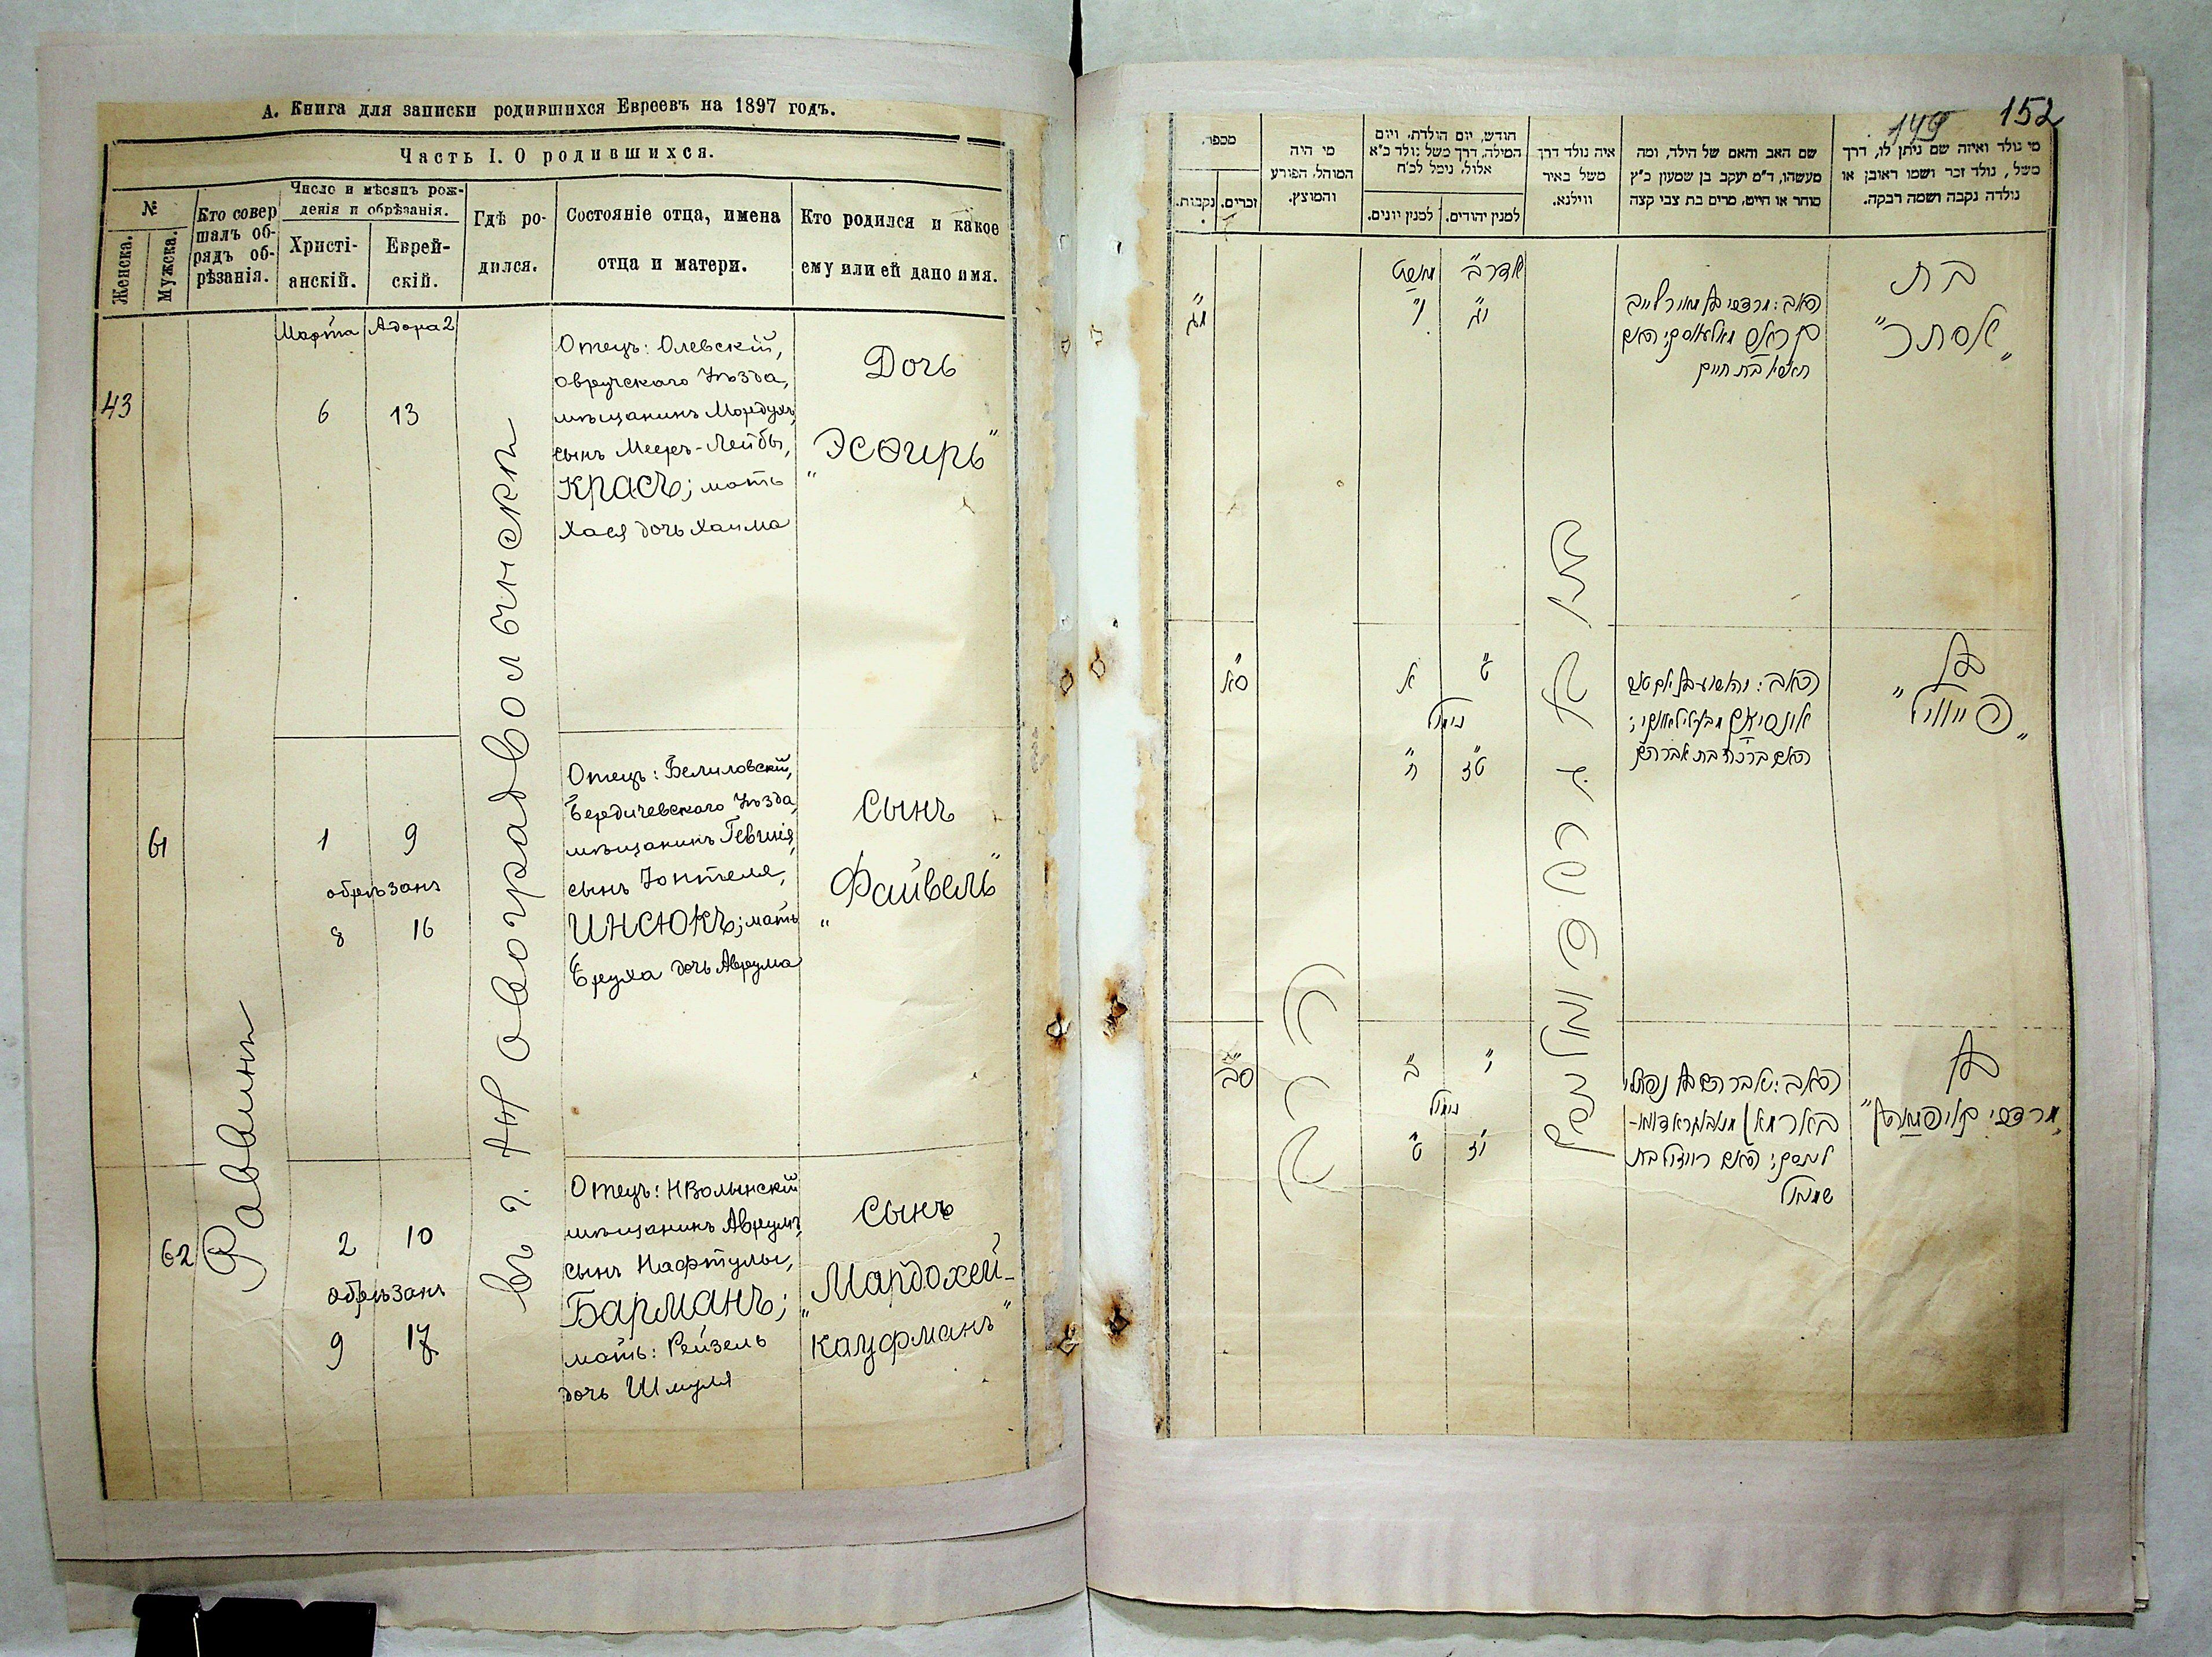 А. Книга для записки родившихся Евреевъ на 1897 годъ.
Часть I. О родившихся.
№
Женска.
Мужска.
Кто совер
шалъ об-
рядъ об-
рѣзанія.
Число и мѣсяцъ рож-
денія и обрѣзанія.
Христі-
анскій.
Еврей-
скій.
Гдѣ ро-
дился.
Состояніе отца, имена
отца и матери.
Кто родился и какое
ему или ей дано имя.
Раввинъ
въ г. Новоградволынскѣ
43
Марта
Адора 2
6
13
Отецъ: Олевскій,
Овручскаго Уѣзда,
мѣщанинъ Мордухъ,
сынъ Мееръ-Лейбы,
Красъ; мать
Хася дочь Хаима
Дочь
„Эсѳирь"
61
1
9
обрѣзанъ
8
16
Отецъ: Белиловскій,
Бердичевскаго Уѣзда,
мѣщанинъ
сынъ Юнтеля,
Инсюкъ; мать
Бруха дочь Аврума
Сынъ
„Файвель"
62
2
10
обрѣзанъ
9
17
Отецъ: НВолынскій
мѣщанинъ Аврумъ,
сынъ Нафтулы,
Барманъ;
мать: Рейзель
дочь Шмуля
Сынъ
„Мардохей-
Кауфманъ"
149
152
מי נולד ואיזה שם ניתן לו, דרך
משל, נולד זכר ושמו ראובן או
נולדה נקבה ושמה רבקה.
שם האב והאם של הילד, ומה
מעשהו, ד"מ יעקב בן שמעון כ"ץ
סוחר או חייט, מרים בת צבי קצה
איה נולד דרך
משל באיר
ווילנא.
חודש, יום הולדת, ויום
המילה, דרך משל נולד כ"א
אלול, נימל לכ"ח
למנין יהודים.
למנין יונים.
מי היה
המוהל, הפורע
והמוצץ.
מספר.
זכרים.
נקבות.
בת
„אסתר"
אדר ב'
י"ג
ו'
מ"ג
בן
„פייוויל"
ט'
א'
נימול
ט"ז
ח'
ס"א
האם ברכה בת אברהם
בן
י'
ב'
נימול
י"ז
ט'
ס"ב
האב: אברהם בן נפתלי
שמואל
הרב